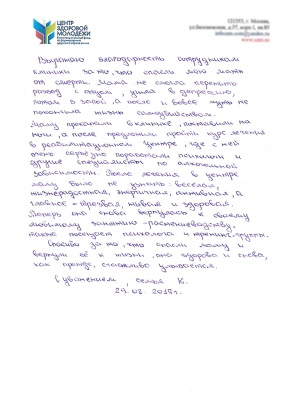 ЦЕНТР
ЗДОРОВОЙ
МОЛОДЕЖИ
г. Москва,
Выражаю благодарность сотрудникам
клиники за то, что спасли мою мать
от смерти. Мама не смогла пережить
развод с отцом, ушла в депрессию,
потом в запой, а после и вовсе чуть не
покончила жизнь самоубийством.
Маму прокапали в клинике, поставили на
ноги, а после предложили пройти курс лечения
в реабилитационном центре, где с ней
очень серьезно поработали психологи и
другие специалисты по алкогольной
зависимости. После лечения в центре
маму было не узнать: веселая,
жизнерадостная, энергичная, активная, а
главное - трезвая, живая и здоровая.
Теперь она снова вернулась к своему
любимому занятию - растениеводству,
также посещает психолога и тренинг-группы.
Спасибо за то, что спасли маму и
вернули её к жизни, она здорова и снова,
как прежде, счастливо улыбается.
С уважением, семья К.